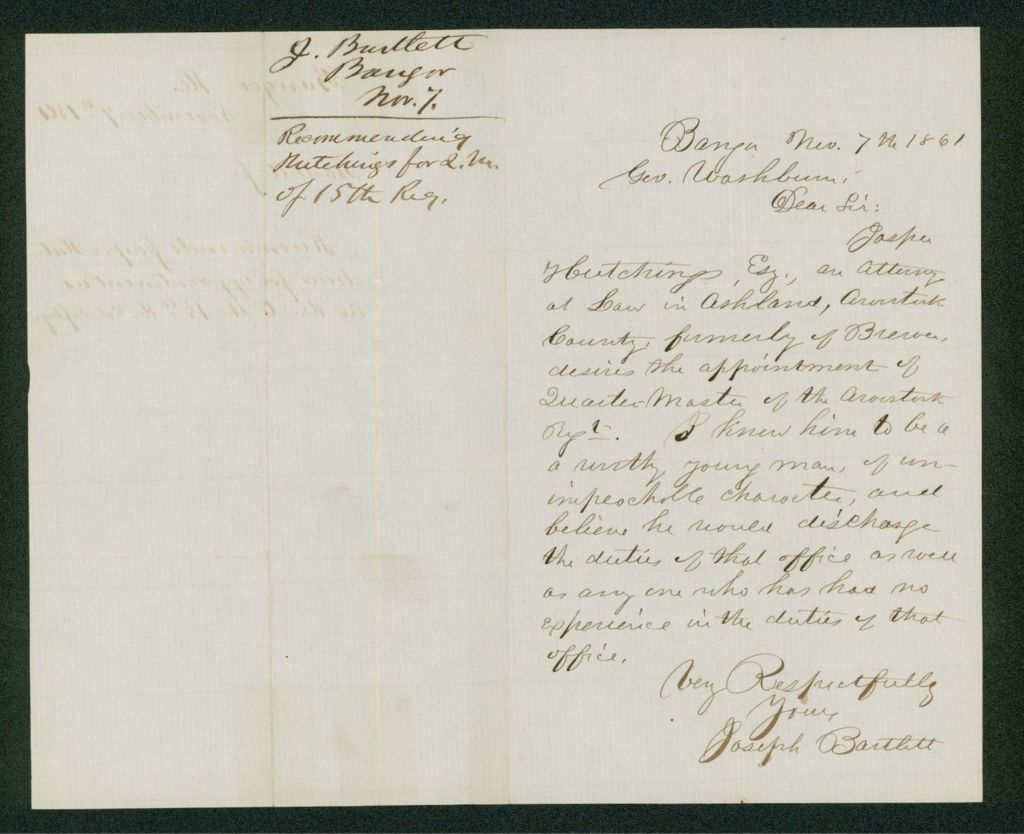 J. Bartlett
Bangor
Nov. 7.
Recommending
Hutchings for Q. M.
of 15th Reg.
Bangor Nov. 7th 1861
Gov. Washburn;
Dear Sir:
Jasper
Hutchings, Esq., an Attorney
at Law in Ashland, Aroostook
County, formerly of Brewer,
desires the appointment of
Quarter-Master of the Aroostook
Regt. I know him to be a
a worthy young man, of un-
impeachable character, and
believe he would discharge
the duties of that office as well
as any one who has had no
experience in the duties of that
office.
Very Respectfully
Yours
Joseph Bartlett